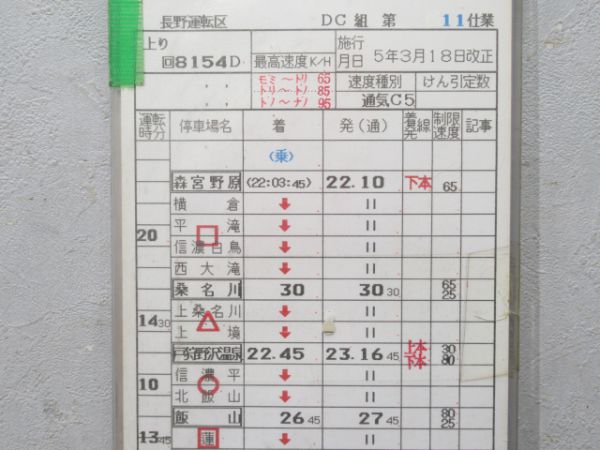 長野運転区 DC組 第 11仕業
上り 回8154D 最高速度K/H 施行月日 5年3月18日改正
モミ〜トリ 65
トリ〜トノ 85
トノ〜ナノ 95
速度種別 けん引定数
通気C5
運転時分 停車場名 着 発(通) 着発線 制限速度 記事
(乗)
森宮野原 (22:03:45) 22.10 下本 65
横倉 ⬇ =
20 平滝 ⬇ =
信濃白鳥 ⬇ =
西大滝 ⬇ =
桑名川 30 30 30 65 25
14 30 上桑名川 ⬇ =
上境 ⬇ =
戸狩野沢温泉 22.45 23.16 45 上本 下本 30 80
10 信濃平 ⬇ =
北飯山 ⬇ =
飯山 26 45 27 45 80 25
13 45 蓮 ⬇ =